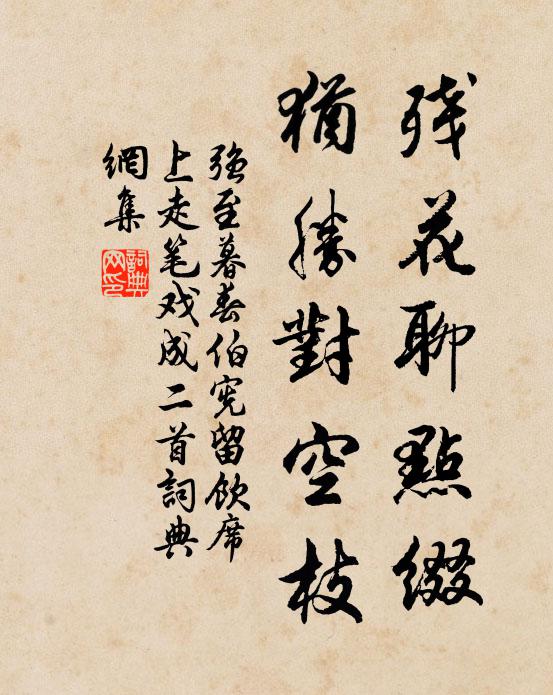 残花聊點綴
猶勝對空枝
强至暮春伯宪留飲席
上走笔戏成二首詞典
網集
詞典
网印